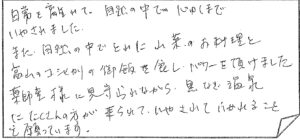 日常を離れて、自然の中で心身まで
いやされました。
また、自然の中でとれた山菜のお料理と
富山のコシヒカリの御飯を食し、パワーを頂けました
薬師堂様に見守られながら、黒ひで温泉
にたくさんの方が来られて、いやされて いかれること
を願っています。